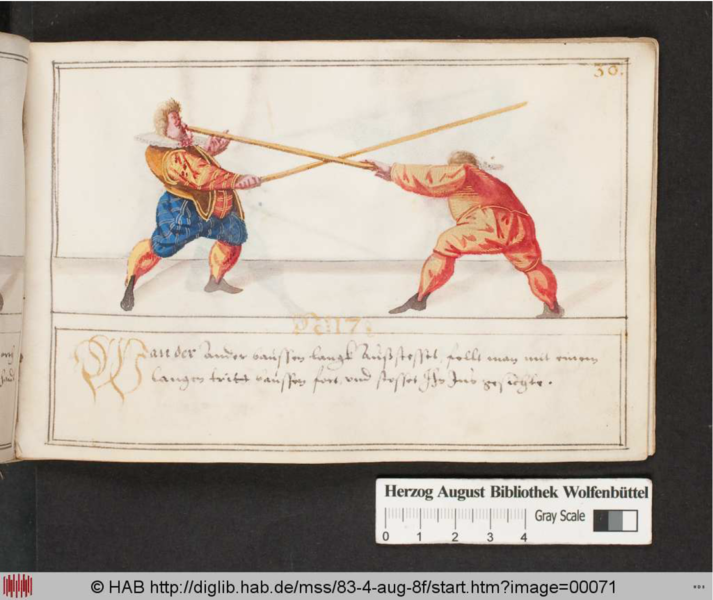 30.
17.
Wan der ander baussen langk Außstosset, fellt man mit einem
langen tritt baussen fort, und stosset Ihn Ins gesichte.
Herzog August Bibliothek Wolfenbüttel
0 1 2 3 4
Gray Scale
© HAB http://diglib.hab.de/mss/83-4-aug-8f/start.htm?image=00071